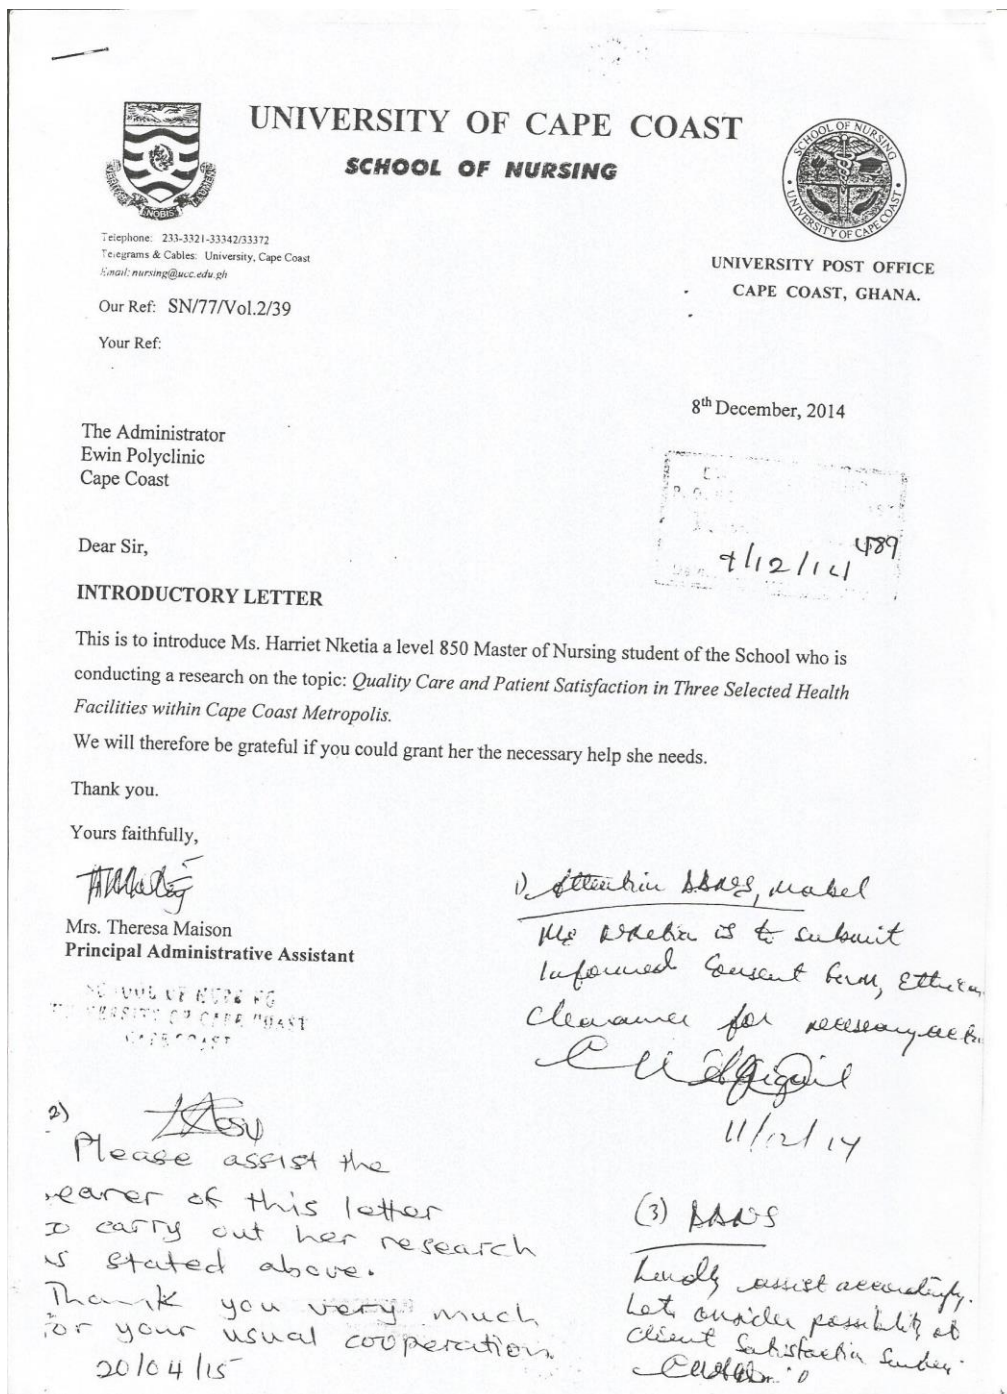 UNIVERSITY OF CAPE COAST
SCHOOL OF NURSING
NOBIS
SCHOOL OF NURSING
UNIVERSITY OF CAPE COAST
Telephone: 233-3321-33342/33372
Telegrams & Cables: University, Cape Coast
Email: nursing@ucc.edu.gh
UNIVERSITY POST OFFICE
CAPE COAST, GHANA.
Our Ref: SN/77/Vol.2/39
Your Ref:
8th December, 2014
The Administrator
Ewin Polyclinic
Cape Coast
489
9/12/14
Dear Sir,
INTRODUCTORY LETTER
This is to introduce Ms. Harriet Nketia a level 850 Master of Nursing student of the School who is
conducting a research on the topic: Quality Care and Patient Satisfaction in Three Selected Health
Facilities within Cape Coast Metropolis.
We will therefore be grateful if you could grant her the necessary help she needs.
Thank you.
Yours faithfully,
Mrs. Theresa Maison
Principal Administrative Assistant
SCHOOL OF NURSING
UNIVERSITY OF CAPE COAST
CAPE COAST
1) Attention DDNS, Mabel
Ms Nketia is to submit
Informed Consent form, Ethical
Clearance for necessary
11/12/14
2)
Please assist the
earer of this letter
o carry out her research
s stated above.
Thank you very much
for your usual cooperation.
20/04/15
(3) DDNS
Kindly assist accordingly.
Let consider possibility of
client Satisfaction